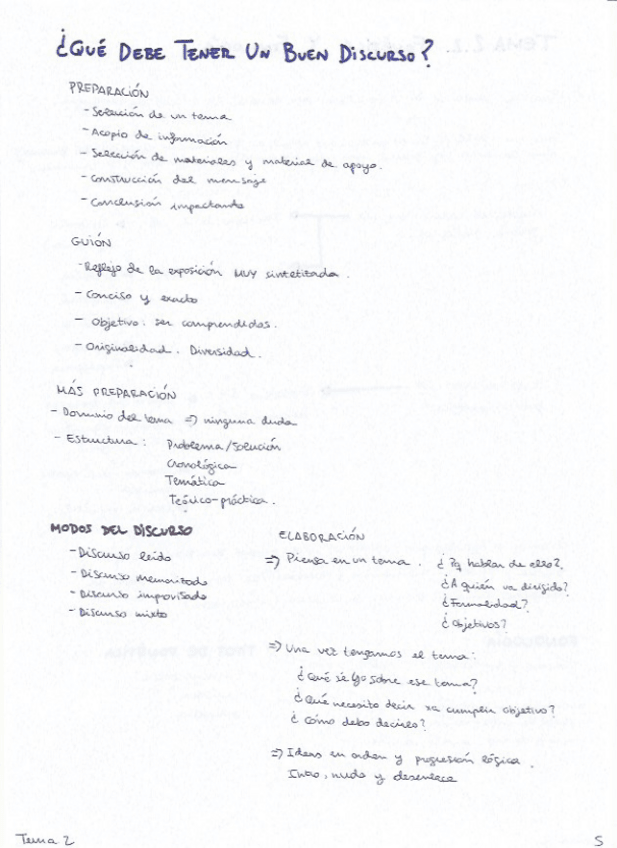 ¿QUÉ DEBE TENER UN BUEN DISCURSO?
PREPARACIÓN
- Selección de un tema
- Acopio de información
- Selección de materiales y material de apoyo.
- Construcción del mensaje
- Conclusión impactante
GUIÓN
- Reflejo de la exposición MUY sintetizada.
- Conciso y exacto
- Objetivo: ser comprendidos.
- Originalidad. Diversidad.
MÁS PREPARACIÓN
- Dominio del tema => ninguna duda
- Estructura: Problema/Solución
Cronológica
Temática
Teórico-práctica.
MODOS DEL DISCURSO
- Discurso leído
- Discurso memorizado
- Discurso improvisado
- Discurso mixto
ELABORACIÓN
=> Piensa en un tema. ¿Pq hablar de ello?
¿A quién va dirigido?
¿Formalidad?
¿Objetivos?
=> Una vez tengamos el tema:
¿Qué sé yo sobre ese tema?
¿Qué necesito decir xa cumplir objetivo?
¿Cómo debo decirlo?
=> Ideas en orden y progresión lógica.
Intro, nudo y desenlace
Tema 2
5